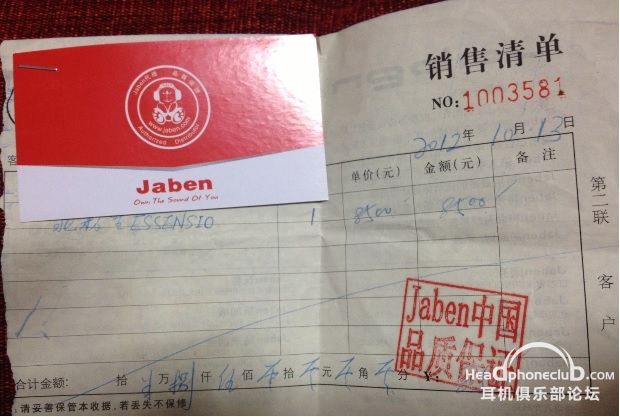 销售清单
NO: 1003581
2012年10月13日
Jaben代理 品质保证
www.jaben.com
Authorized Distributor
Jaben
Own The Sound Of You
单价(元) 金额(元) 备注
ESSENSIO 1 8500 8500
第二联 客户
Jaben中国
品质保证
合计金额: 拾 万 捌 仟 伍 佰 拾 元 角 分 ¥:
请妥善保管本收据,若丢失不保修
Headphoneclub.com
耳机俱乐部论坛